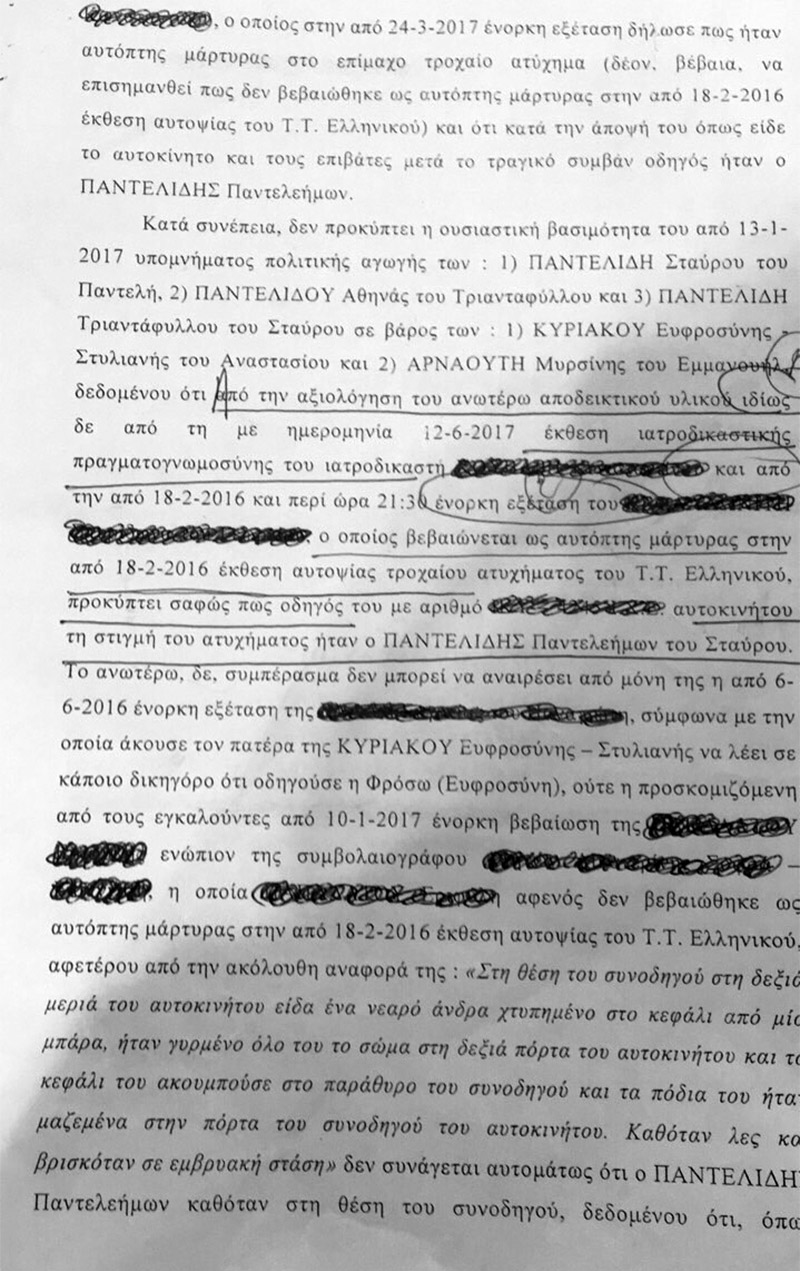 , ο οποίος στην από 24-3-2017 ένορκη εξέταση δήλωσε πως ήταν
αυτόπτης μάρτυρας στο επίμαχο τροχαίο ατύχημα (δέον, βέβαια, να
επισημανθεί πως δεν βεβαιώθηκε ως αυτόπτης μάρτυρας στην από 18-2-2016
έκθεση αυτοψίας του Τ.Τ. Ελληνικού) και ότι κατά την άποψή του όπως είδε
το αυτοκίνητο και τους επιβάτες μετά το τραγικό συμβάν οδηγός ήταν ο
ΠΑΝΤΕΛΙΔΗΣ Παντελεήμων.
Κατά συνέπεια, δεν προκύπτει η ουσιαστική βασιμότητα του από 13-1-
2017 υπομνήματος πολιτικής αγωγής των : 1) ΠΑΝΤΕΛΙΔΗ Σταύρου του
Παντελή, 2) ΠΑΝΤΕΛΙΔΟΥ Αθηνάς του Τριανταφύλλου και 3) ΠΑΝΤΕΛΙΔΗ
Τριαντάφυλλου του Σταύρου σε βάρος των : 1) ΚΥΡΙΑΚΟΥ Ευφροσύνης -
Στυλιανής του Αναστασίου και 2) ΑΡΝΑΟΥΤΗ Μυρσίνης του Εμμανουήλ,
δεδομένου ότι από την αξιολόγηση του ανωτέρω αποδεικτικού υλικού ιδίως
δε από τη με ημερομηνία 12-6-2017 έκθεση ιατροδικαστικής
πραγματογνωμοσύνης του ιατροδικαστή και από
την από 18-2-2016 και περί ώρα 21:30 ένορκη εξέταση του
, ο οποίος βεβαιώνεται ως αυτόπτης μάρτυρας στην
από 18-2-2016 έκθεση αυτοψίας τροχαίου ατυχήματος του Τ.Τ. Ελληνικού,
προκύπτει σαφώς πως οδηγός του με αριθμό αυτοκινήτου
τη στιγμή του ατυχήματος ήταν ο ΠΑΝΤΕΛΙΔΗΣ Παντελεήμων του Σταύρου.
Το ανωτέρω, δε, συμπέρασμα δεν μπορεί να αναιρέσει από μόνη της η από 6-
6-2016 ένορκη εξέταση της , σύμφωνα με την
οποία άκουσε τον πατέρα της ΚΥΡΙΑΚΟΥ Ευφροσύνης – Στυλιανής να λέει σε
κάποιο δικηγόρο ότι οδηγούσε η Φρόσω (Ευφροσύνη), ούτε η προσκομιζόμενη
από τους εγκαλούντες από 10-1-2017 ένορκη βεβαίωση της
ενώπιον της συμβολαιογράφου –
, η οποία αφενός δεν βεβαιώθηκε ως
αυτόπτης μάρτυρας στην από 18-2-2016 έκθεση αυτοψίας του Τ.Τ. Ελληνικού,
αφετέρου από την ακόλουθη αναφορά της : «Στη θέση του συνοδηγού στη δεξιά
μεριά του αυτοκινήτου είδα ένα νεαρό άνδρα χτυπημένο στο κεφάλι από μία
μπάρα, ήταν γυρμένο όλο του το σώμα στη δεξιά πόρτα του αυτοκινήτου και το
κεφάλι του ακουμπούσε στο παράθυρο του συνοδηγού και τα πόδια του ήταν
μαζεμένα στην πόρτα του συνοδηγού του αυτοκινήτου. Καθόταν λες και
βρισκόταν σε εμβρυακή στάση» δεν συνάγεται αυτομάτως ότι ο ΠΑΝΤΕΛΙΔΗΣ
Παντελεήμων καθόταν στη θέση του συνοδηγού, δεδομένου ότι, όπως